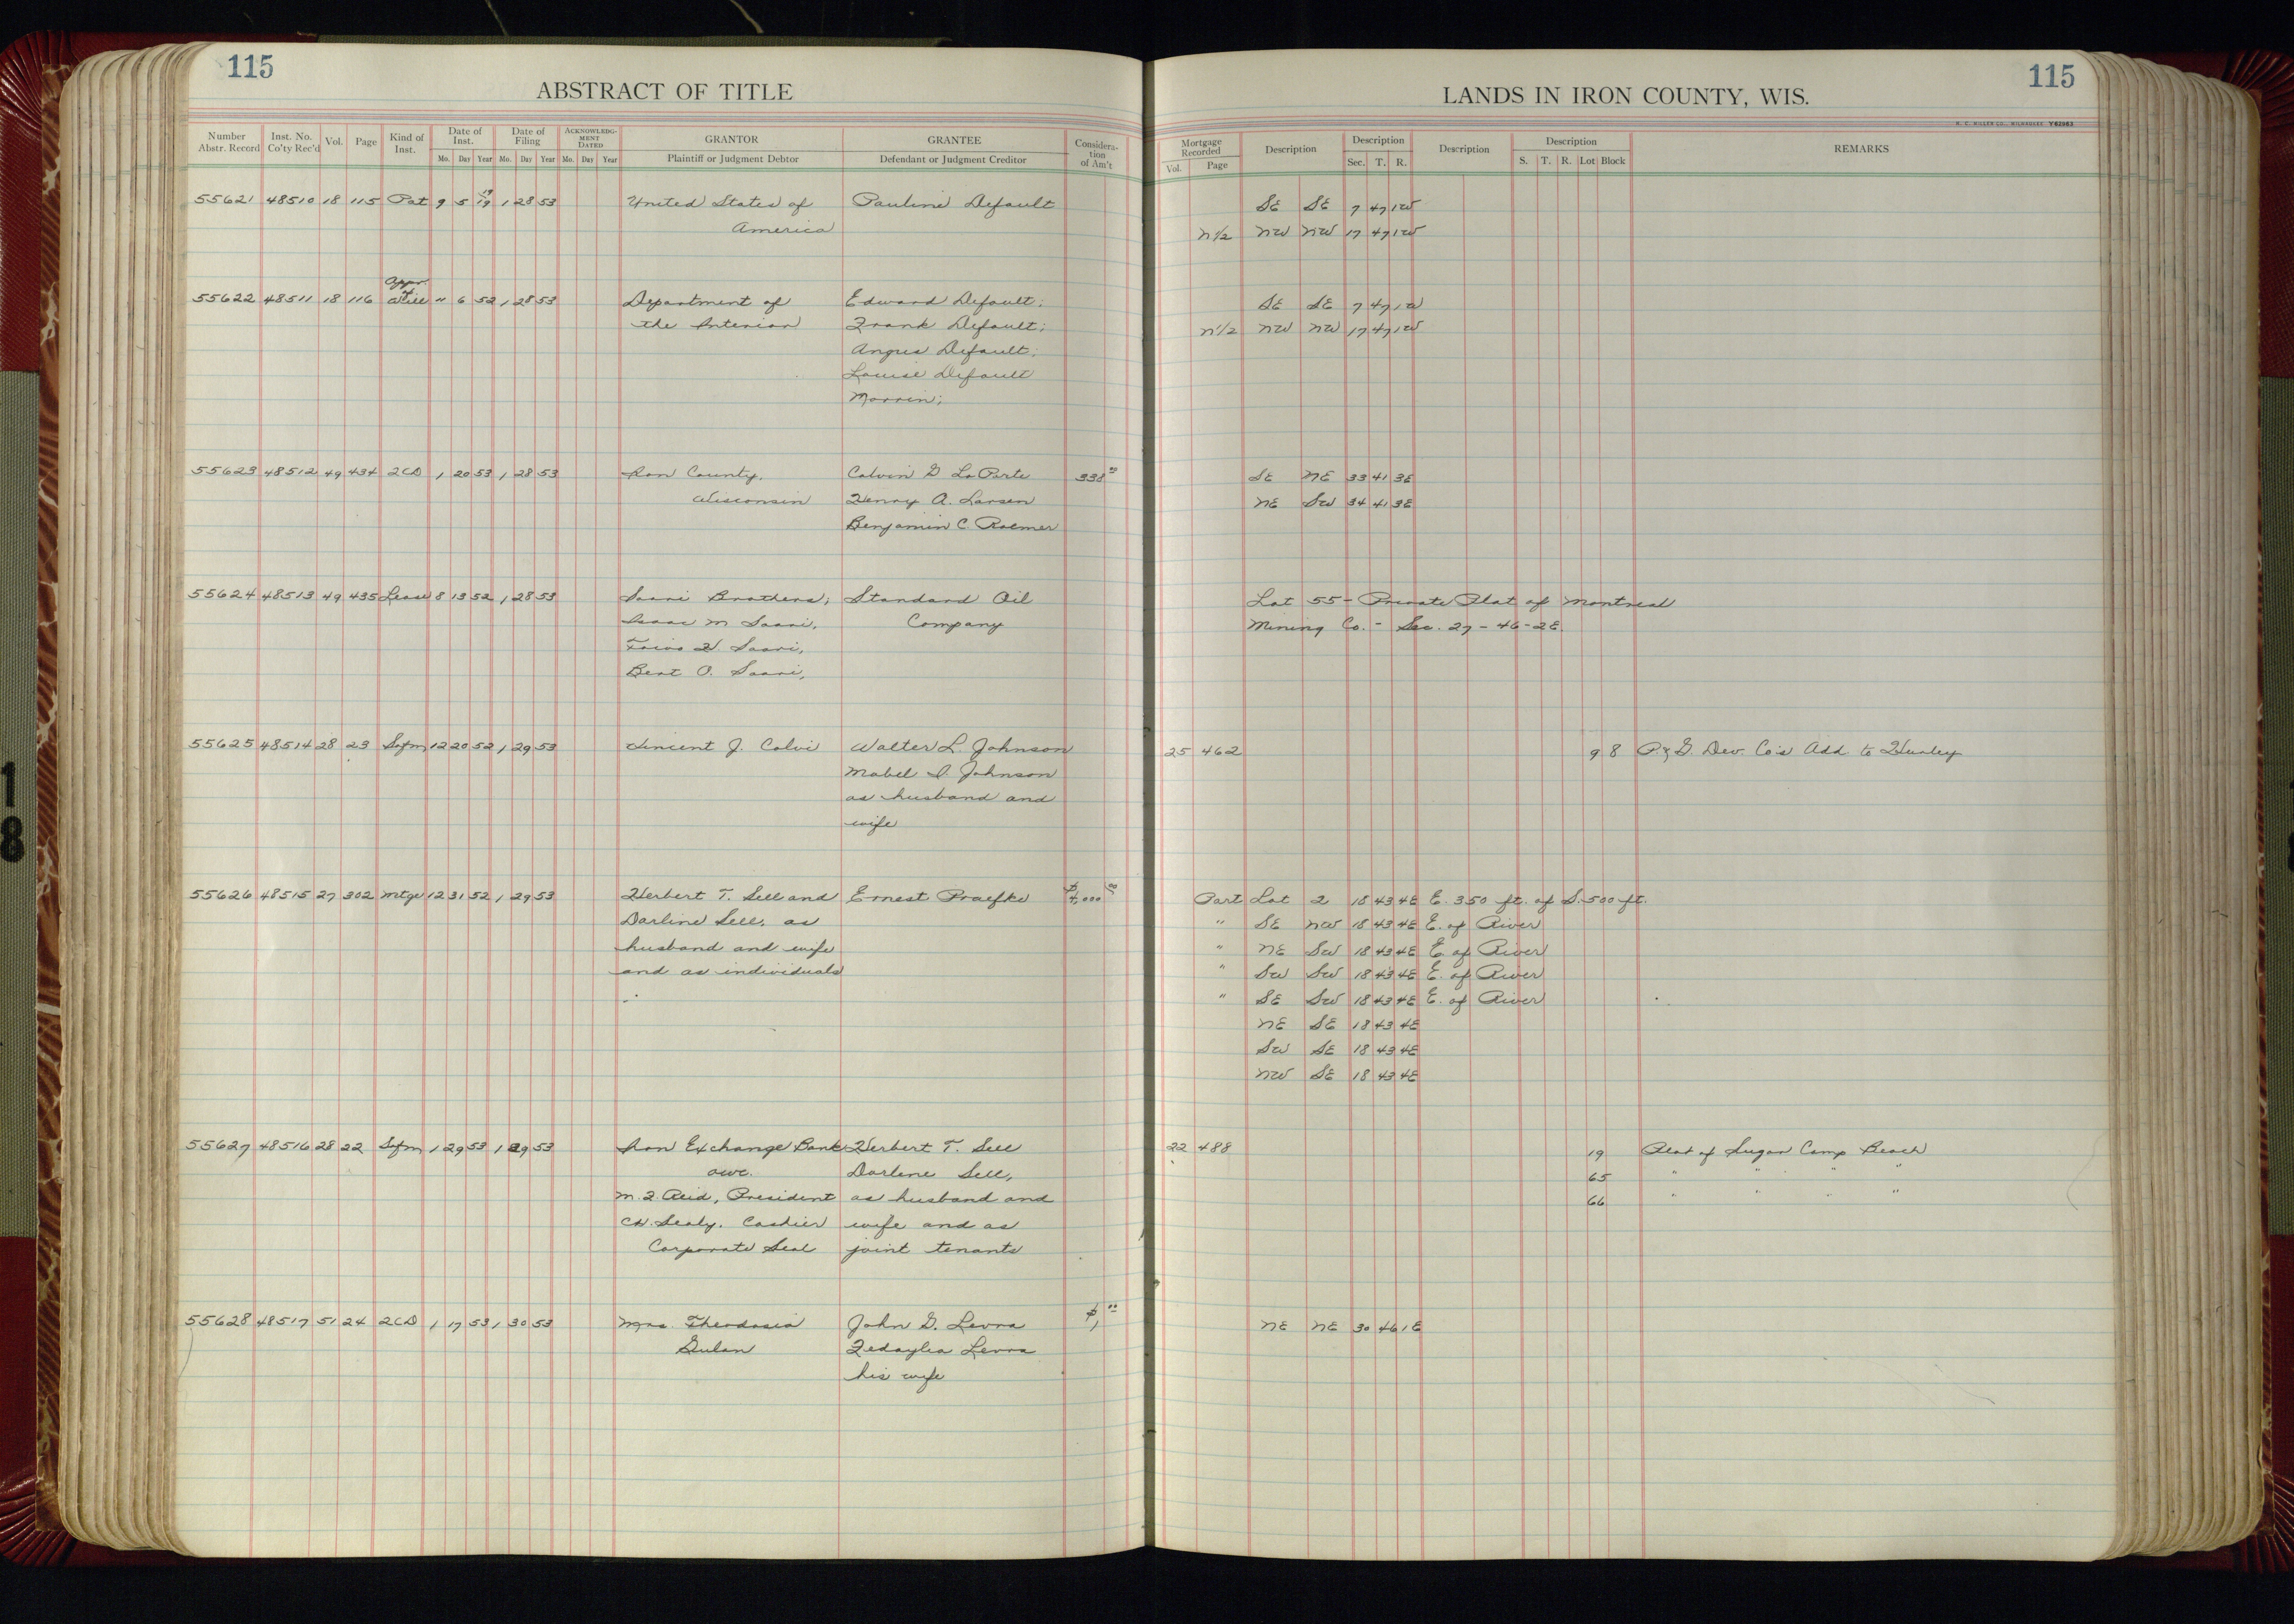 115
ABSTRACT OF TITLE
Number Abstr. Record Inst. No. Co'ty Rec'd Vol. Page Kind of Inst. Date of Inst. Mo. Day Year Date of Filing Mo. Day Year ACKNOWLEDGMENT DATED Mo. Day Year GRANTOR Plaintiff or Judgment Debtor GRANTEE Defendant or Judgment Creditor Consideration of Am't
55621 48510 18 115 Pat 9 5 19 19 1 28 53 United States of Pauline Default
America
Appr. of
55622 48511 18 116 Will " 6 52 1 28 53 Department of Edward Default;
the Interior Frank Default;
Angus Default;
Louise Default
Morrin;
55623 48512 49 434 2CD 1 20 53 1 28 53 Iron County, Calvin G LaPorte 338 00
Wisconsin Henry A. Larsen
Benjamin C. Roemer
55624 48513 49 435 Lease 8 13 52 1 28 53 Saari Brothers; Standard Oil
Isaac M Saari, Company
Toivo H Saari,
Bert O. Saari,
55625 48514 28 23 Safm 12 20 52 1 29 53 Vincent J. Calvi Walter L. Johnson
Mabel I. Johnson
as husband and
wife
55626 48515 27 302 Mtge 12 31 52 1 29 53 Herbert T. Sell and Ernest Praefke $4,000 00
Darline Sell, as
husband and wife
and as individuals
55627 48516 28 22 Safm 1 29 53 1 29 53 Iron Exchange Bank Herbert T. Sell
Darlene Sell,
M. F. Reid, President as husband and
C.W. Sealy, Cashier wife and as
Corporate Seal joint tenants
55628 48517 51 24 2CD 1 17 53 1 30 53 Mrs. Theodosia John G. Levra $1, 00
Gulan Levra
his wife
115
LANDS IN IRON COUNTY, WIS.
H. C. MILLER CO., MILWAUKEE Y62963
Mortgage Recorded Vol. Page Description Description Sec. T. R. Description Description S. T. R. Lot Block REMARKS
SE SE 7 47 1W
N1/2 NW NW 17 47 1W
SE SE 7 47 1W
N1/2 NW NW 17 47 1W
SE NE 33 41 3E
NE SW 34 41 3E
Lot 55 - Private Plat of Montreal
Mining Co. - Sec. 27 - 46 - 2E.
25 462 9 8 P & G. Dev. Co's Add. to Hurley
Part Lot 2 18 43 4E E. 350 ft. of S. 500 ft.
" SE NW 18 43 4E E. of River
" NE SW 18 43 4E E. of River
" SW SW 18 43 4E E. of River
" SE SW 18 43 4E E. of River
NE SE 18 43 4E
SW SE 18 43 4E
NW SE 18 43 4E
22 488 19 Plat of Sugar Camp Beach
65 " " " "
66 " " " "
NE NE 30 46 1E
18